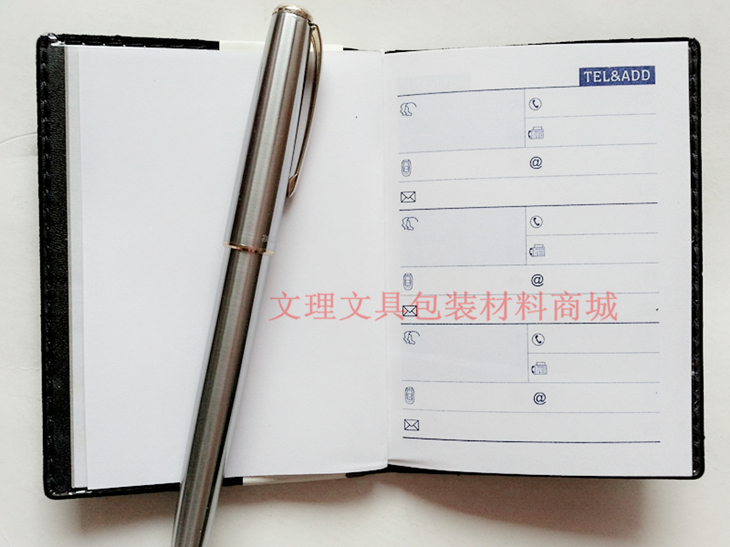 TEL&ADD
@
@
文理文具包装材料商城
@